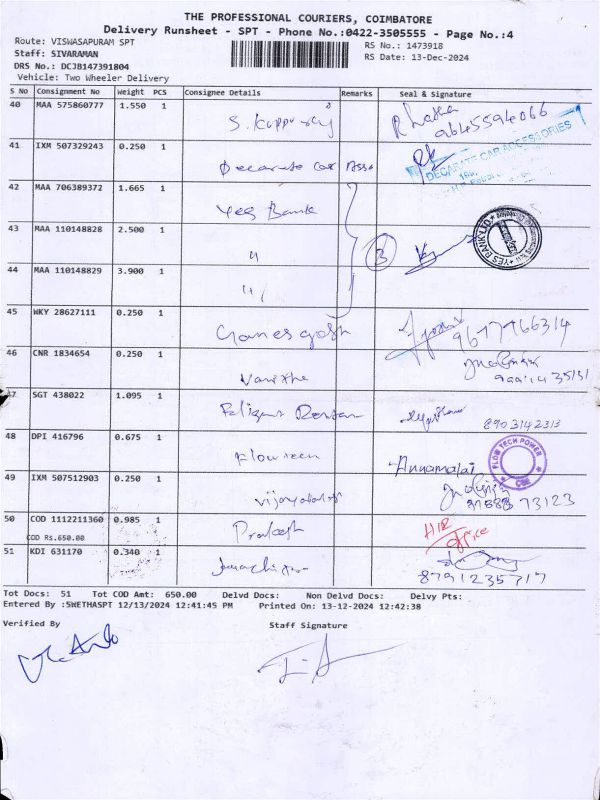 THE PROFESSIONAL COURIERS, COIMBATORE
Delivery Runsheet - SPT - Phone No.:0422-3505555 - Page No.:4
Route: VISWASAPURAM SPT
RS No.: 1473918
Staff: SIVARAMAN
RS Date: 13-Dec-2024
DRS No.: DCJB147391804
Vehicle: Two Wheeler Delivery
S No Consignment No Weight PCS Consignee Details Remarks Seal & Signature
40 MAA 575860777 1.550 1 S. Kuppusay R Latha 9645594066
41 IXM 507329243 0.250 1 Decarate Car Asso DECARATE CAR ACCESSORIES
42 MAA 706389372 1.665 1 Yes Bank
43 MAA 110148828 2.500 1 " 3 YES BANK LTD
44 MAA 110148829 3.900 1 "
45 WKY 28627111 0.250 1 Ganesgosh 9617766314
46 CNR 1834654 0.250 1 Vanitha
47 SGT 438022 1.095 1 8903142313
48 DPI 416796 0.675 1 Flowteen Annamalai FLOW TECH POWER CBE
49 IXM 507512903 0.250 1 73123
50 COD 1112211360 0.985 1 Prakash H/R office
COD Rs.650.00
51 KDI 631170 0.340 1 8791235717
Tot Docs: 51 Tot COD Amt: 650.00 Delvd Docs: Non Delvd Docs: Delvy Pts:
Entered By :SWETHASPT 12/13/2024 12:41:45 PM Printed On: 13-12-2024 12:42:38
Verified By Staff Signature